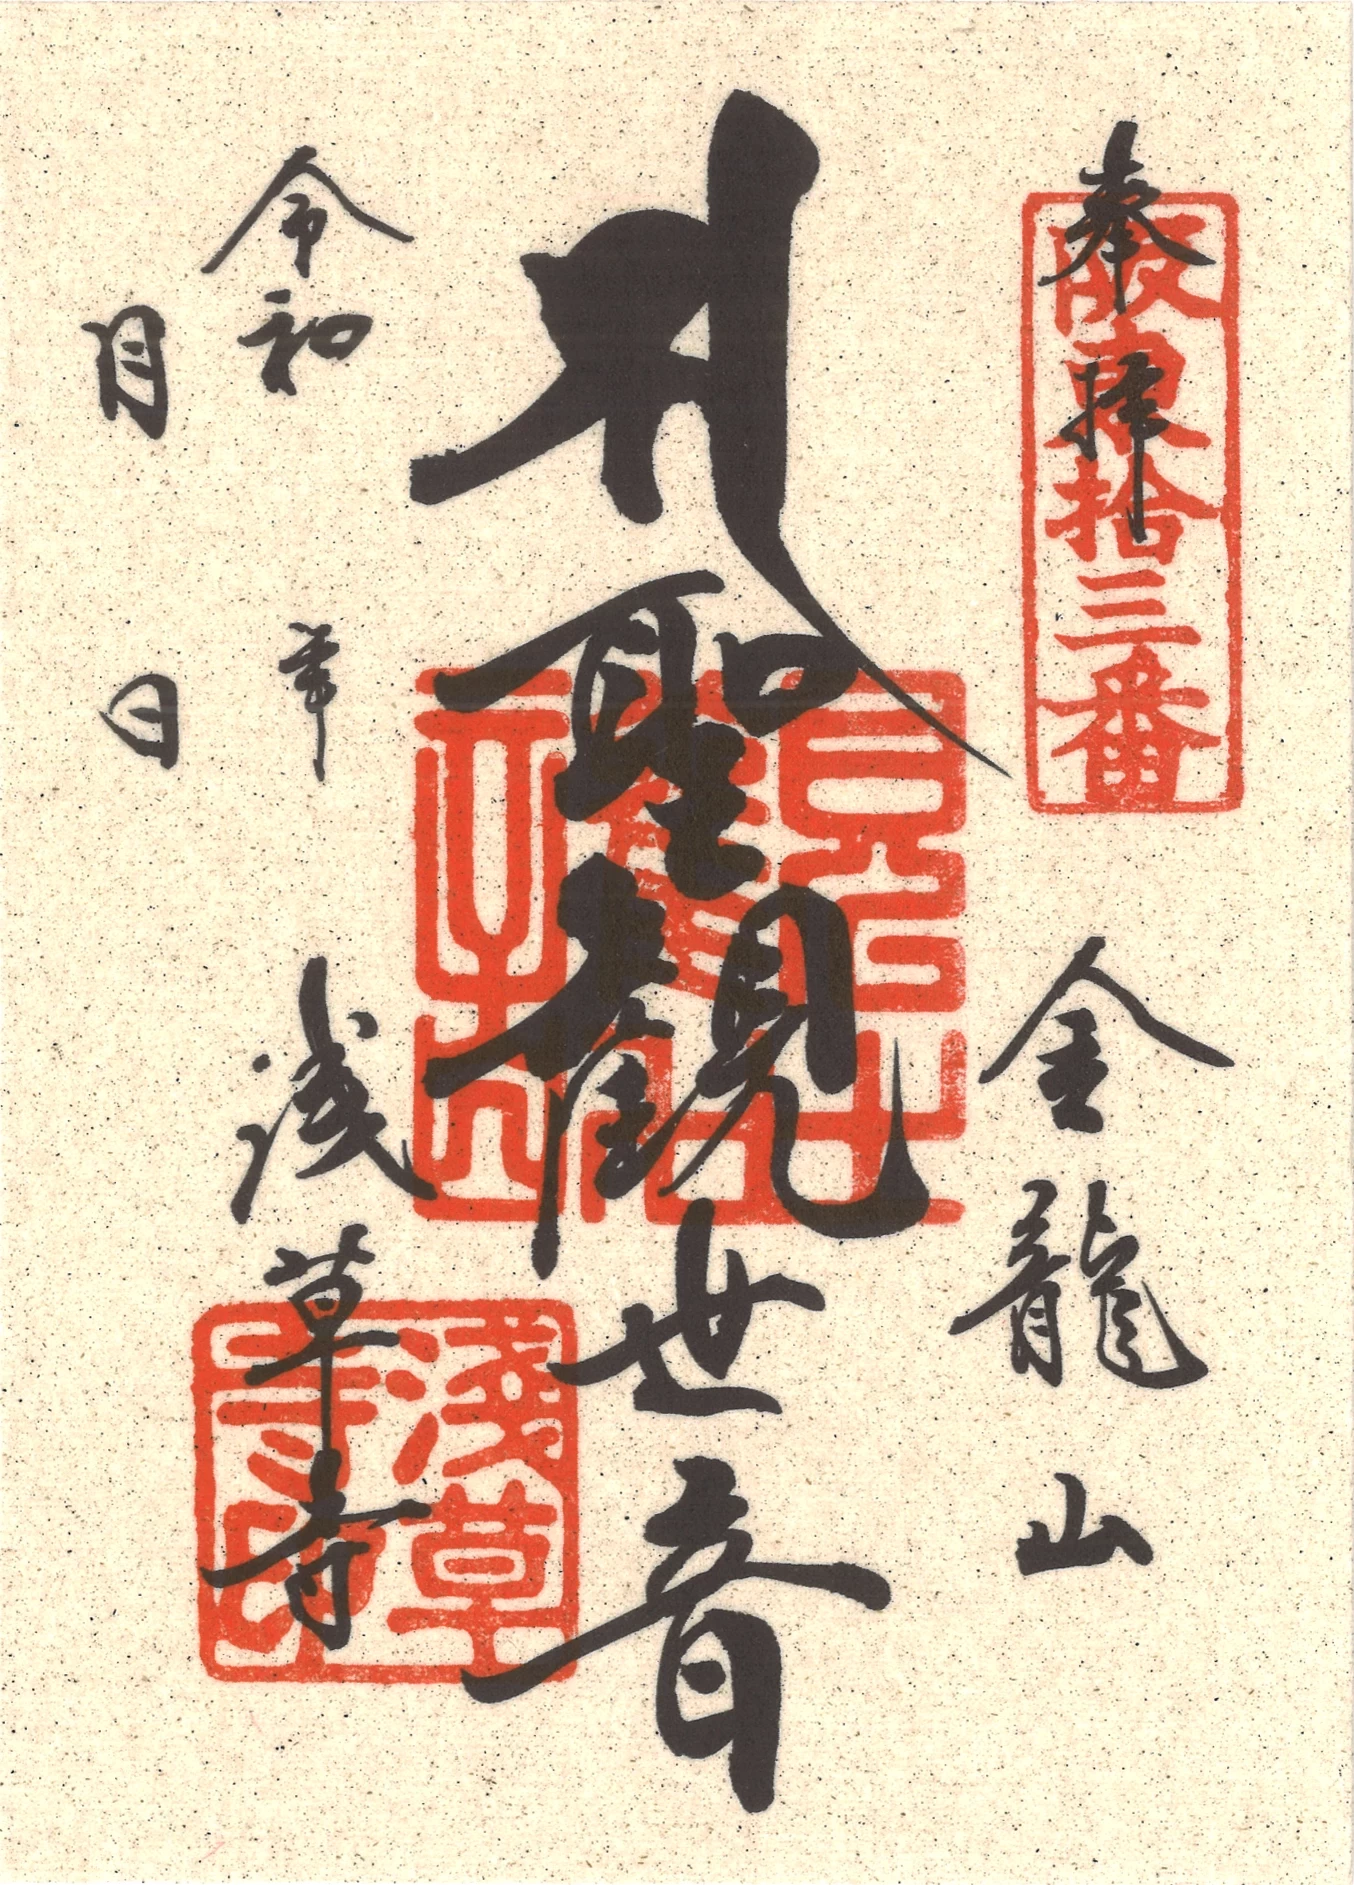 奉拝
阪東拾三番
金龍山
聖観世音
令和 年
月 日
浅草寺
淺草寺印